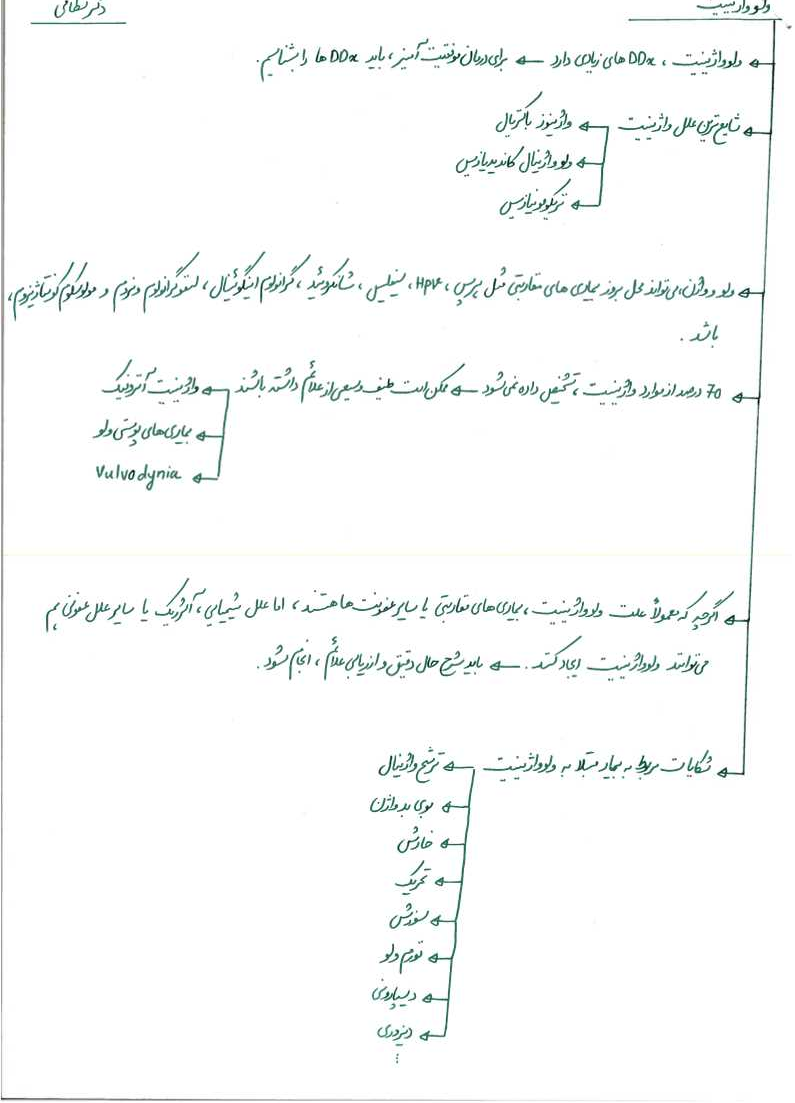 ولوواژینیت
دکتر نظامی
ولوواژینیت، DDx های زیادی دارد ← برای درمان موفقیت آمیز، باید DDx ها را بشناسیم.
شایع ترین علل واژینیت ← واژینوز باکتریال
← ولوواژینال کاندیدیازیس
← تریکومونیازیس
ولو و واژن، می‌تواند محل بروز بیماری های مقاربتی مثل هرپس، HPV، سیفلیس، شانکروئید، گرانولوم اینگوئینال، لنفوگرانولوم ونروم و مولوسکوم کونتاژیوزوم،
باشد.
70 درصد از موارد واژینیت، تشخیص داده نمی‌شود ← ممکن است طیف وسیعی از علائم داشته باشند ← واژینیت آتروفیک
← بیماری‌های پوستی ولو
← Vulvodynia
اگرچه که معمولاً علت ولوواژینیت، بیماری‌های مقاربتی یا سایر عفونت ها هستند، اما علل شیمیایی، آلرژیک یا سایر علل عفونی هم
می‌توانند ولوواژینیت ایجاد کنند. ← باید شرح حال دقیق و ارزیابی علائم، انجام شود.
شکایات مربوط به بیمار مبتلا به ولوواژینیت ← ترشح واژینال
← بوی بد واژن
← خارش
← تحریک
← سوزش
← تورم ولو
← دیسپارونی
← دیزوری
⋮